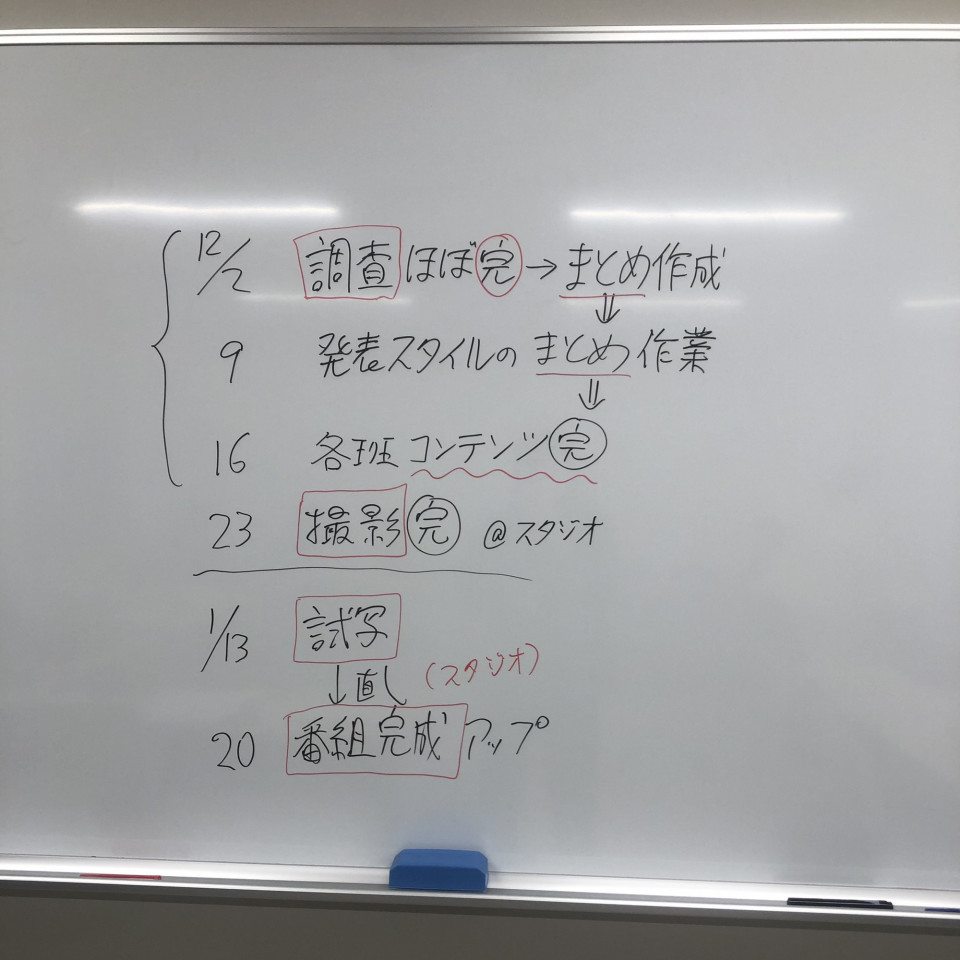 12/2 調査ほぼ完→まとめ作成
⇓
9 発表スタイルのまとめ作業
⇓
16 各班コンテンツ完
23 撮影完 @スタジオ
1/13 試写
↓直し (スタジオ)
20 番組完成アップ